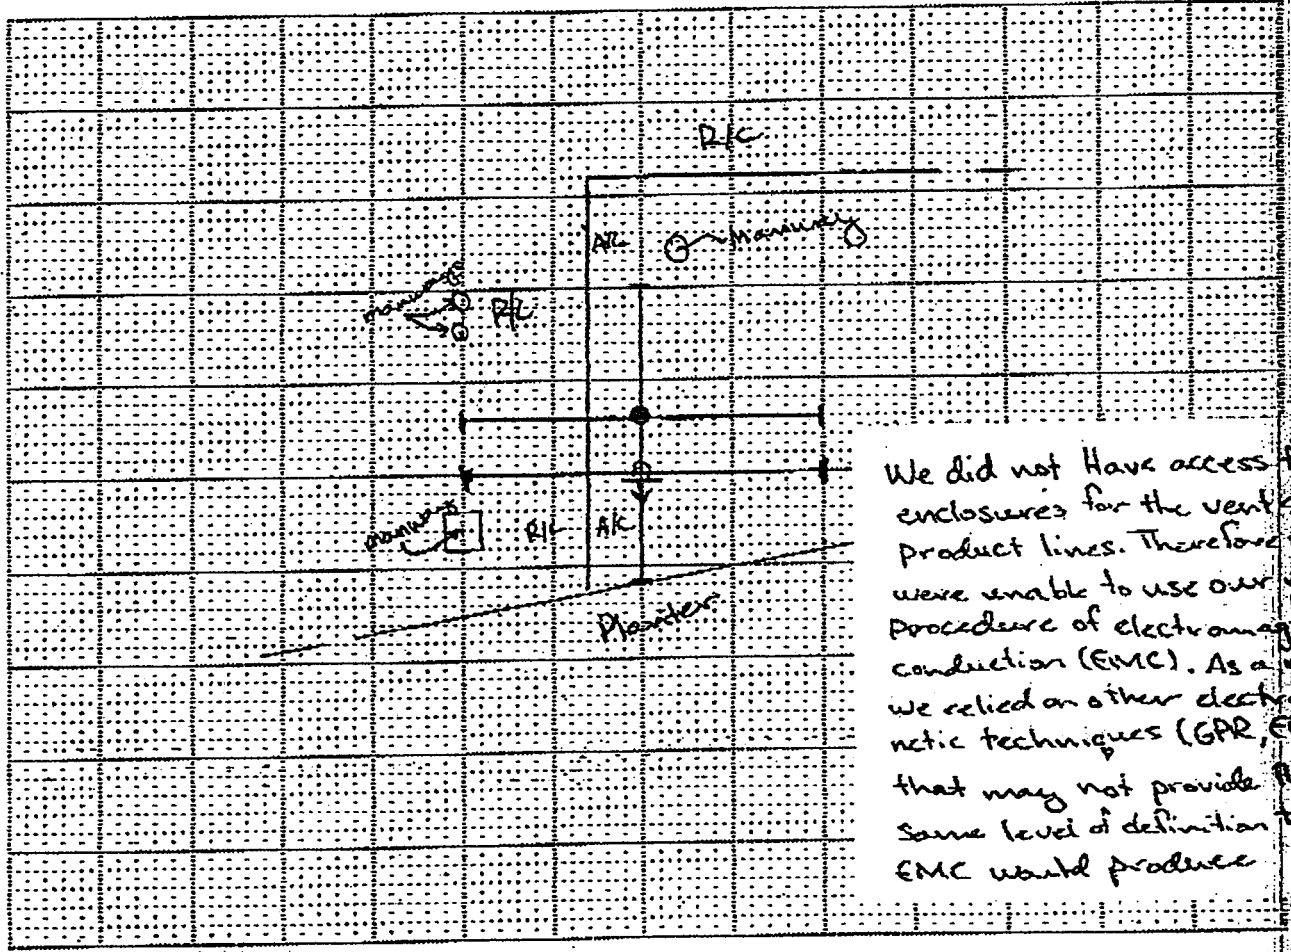 R/C
A/C
manway
manways
R/C
manway
R/C A/C
Planter
We did not Have access
enclosures for the vent
product lines. Therefore
were unable to use our
procedure of electromag
conduction (EMC). As a
we relied on other electro
netic techniques (GPR,
that may not provide
same level of definition
EMC would produce